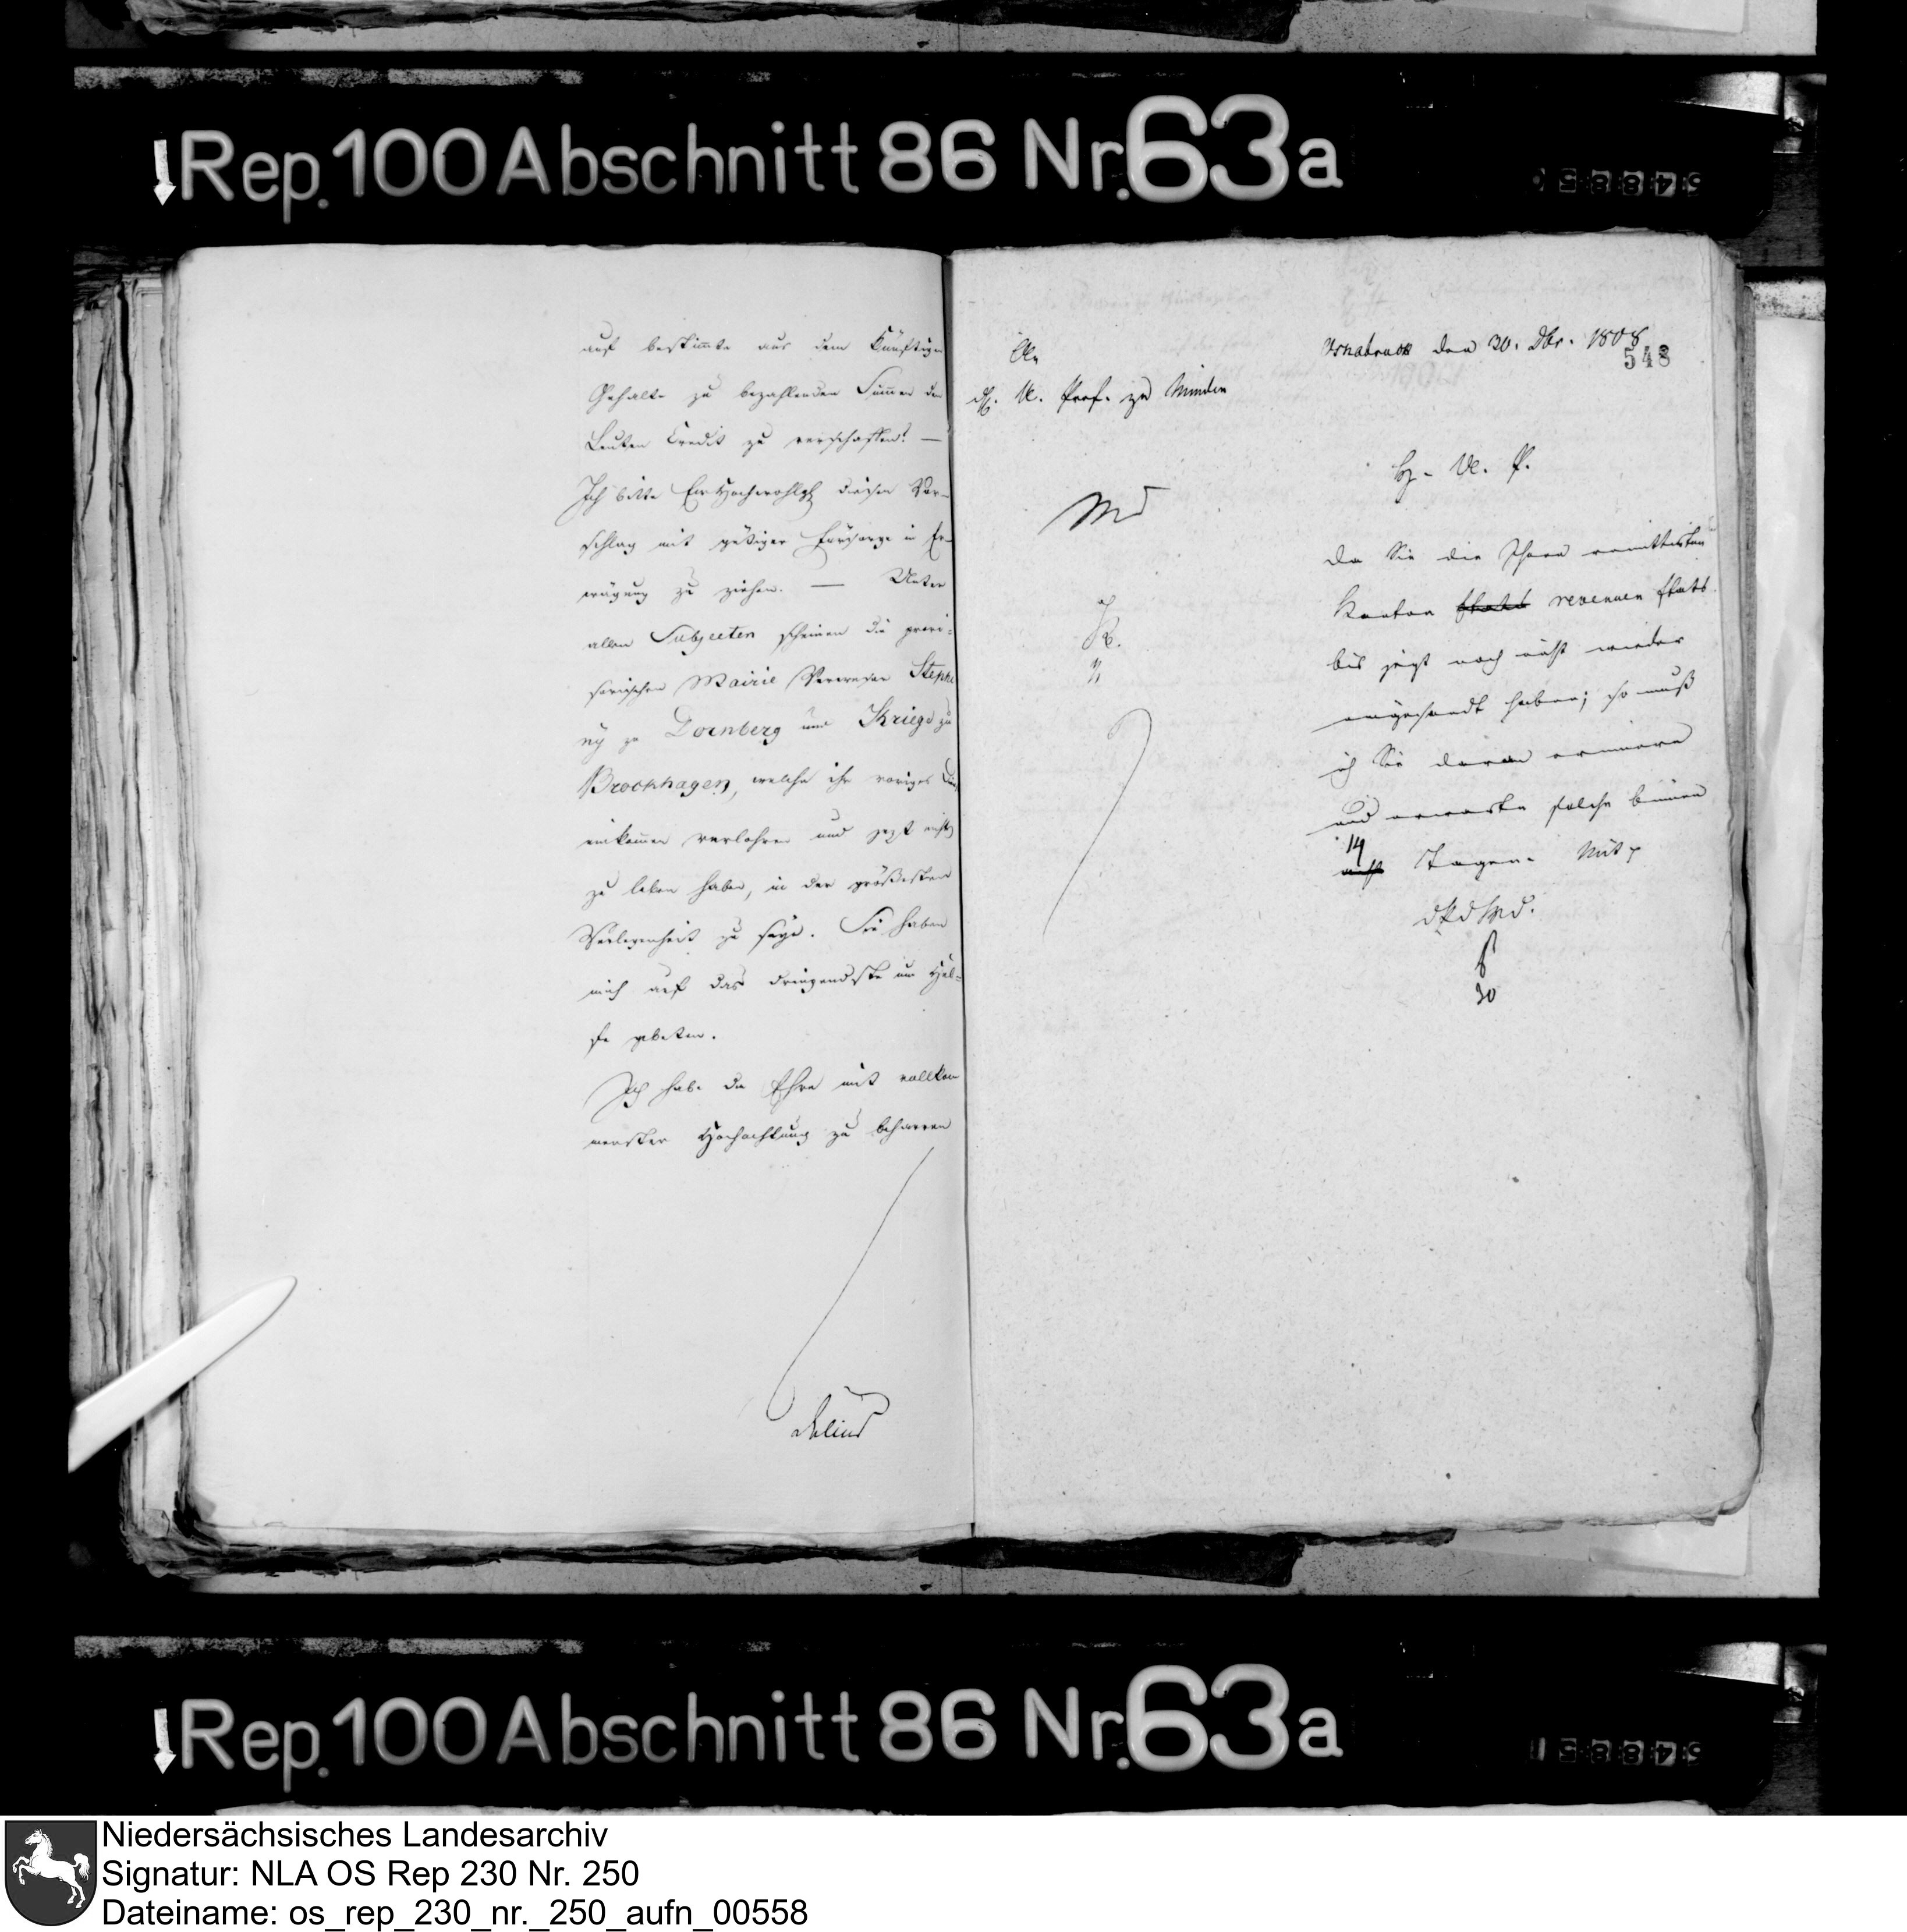 Rep. 100 Abschnitt 86 Nr. 63a
auf bestimmte aus dem künftigen
Gehalte zu bezahlenden Summen den
Leuten Credit zu verschaffen? —
Ich bitte Ew Hochwohlgb diesen Vor-
schlag mit gütiger Fürsorge in Er-
wägung zu ziehen. — Unter
allen Subjecten scheinen die provi-
sorischen Mairie Verweser Stepha
ny zu Dornberg und Kriege zu
Brockhagen, welche ihr voriges
einkommen verlohren und jezt nichts
zu leben haben, in der größesten
Verlegenheit zu seyn. Sie haben
mich auf das dringendste um Hül-
fe gebeten.
Ich habe die Ehre mit vollkom
menster Hochachtung zu beharren
Delius
548
Osnabruck den 30. Dbr. 1808
An
d. U. Präf. zu Minden
H. U. P.
Md
Da Sie die Ihnen remittirten
Kanton Etats revenuen Etats
bis jezt noch nicht wieder
eingesandt haben; so muß
ich Sie daran erinnern
und erwarte solche binnen
14
acht Tagen. Mit
30
Rep. 100 Abschnitt 86 Nr. 63a
Niedersächsisches Landesarchiv
Signatur: NLA OS Rep 230 Nr. 250
Dateiname: os_rep_230_nr._250_aufn_00558